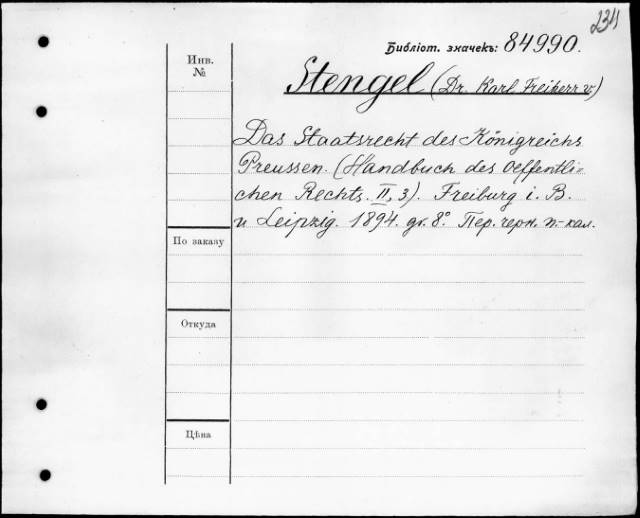 234
Библіот. значекъ: 84990.
Инв.
№
Stengel (Dr. Karl Freiherr v)
Das Staatsrecht des Königreichs
Preussen. (Handbuch des Oeffentli=
chen Rechts. II, 3). Freiburg i. B.
u Leipzig. 1894. gr. 8° Пер. черн. п-кал.
По заказу
Откуда
Цѣна